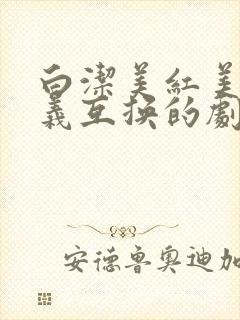 白潔美紅美
義互換的劇
安德魯奧迪加